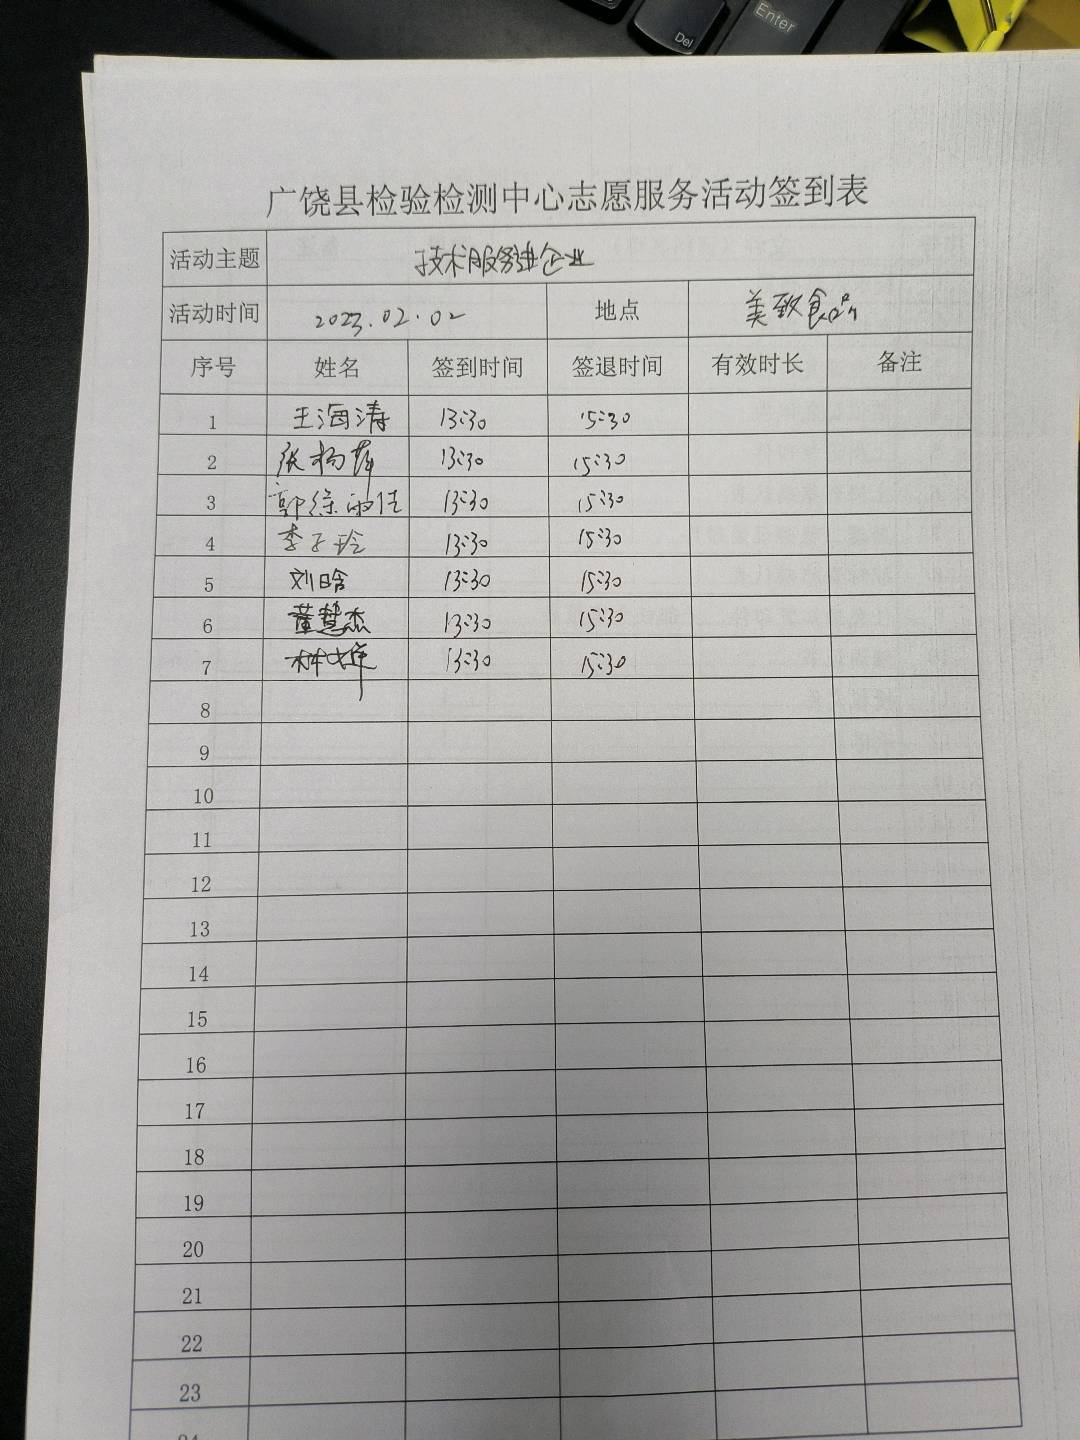 Enter
Del
广饶县检验检测中心志愿服务活动签到表
活动主题 技术服务进企业
活动时间 2023.02.02 地点 美致食品
序号 姓名 签到时间 签退时间 有效时长 备注
1 王海涛 13:30 15:30
2 张杨 13:30 15:30
3 郭徐雨佳 13:30 15:30
4 李子玲 13:30 15:30
5 刘晗 13:30 15:30
6 董慧杰 13:30 15:30
7 13:30 15:30
8
9
10
11
12
13
14
15
16
17
18
19
20
21
22
23